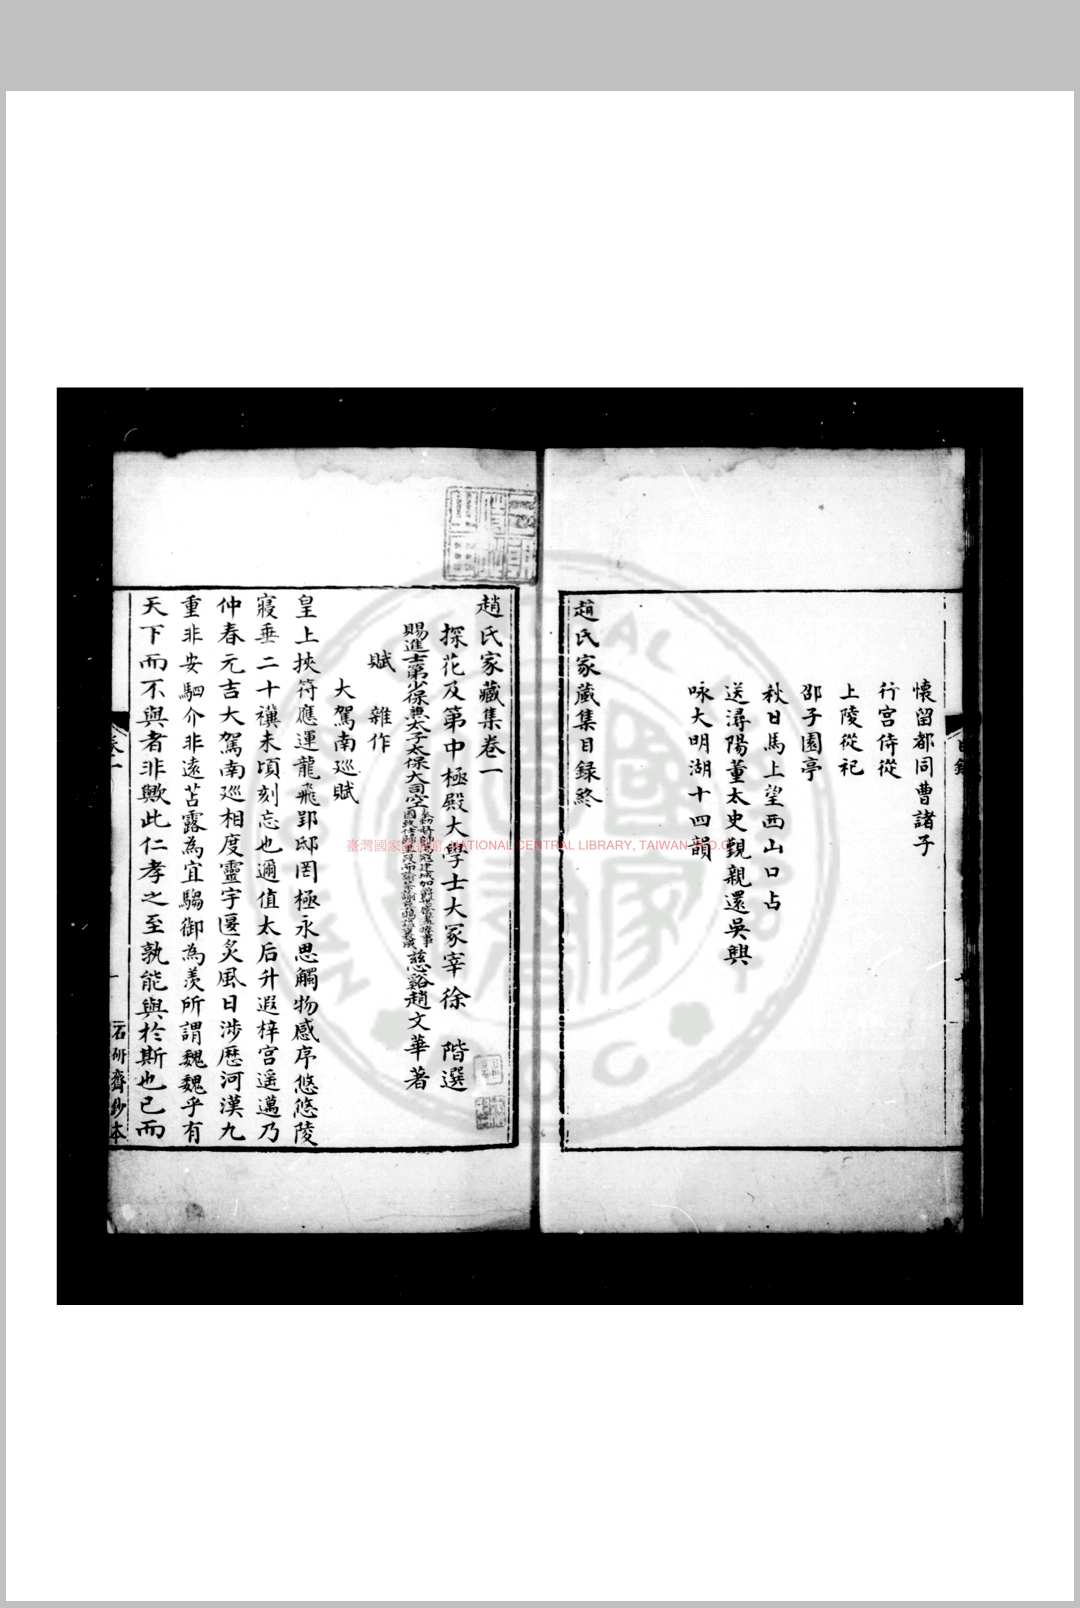 懷留都同曹諸子
行宮侍從
上陵從祀
邵子園亭
秋日馬上望西山口占
送潯陽董太史覲親還吳興
咏大明湖十四韻
趙氏家藏集目録終
趙氏家藏集卷一
探花及第中極殿大學士大冢宰徐 階選
賜進士第少保兼太子太保大司空
慈谿趙文華著
賦 雜作
大駕南巡賦
皇上挾符應運龍飛郢邸罔極永思觸物感序悠悠陵
寢垂二十禩未頃刻忘也邇值太后升遐梓宮遥邁乃
仲春元吉大駕南巡相度靈宇匽炙風日涉歷河漢九
重非安駟介非遠苫露為宜騶御為羨所謂魏魏乎有
天下而不與者非歟此仁孝之至孰能與於斯也已而
卷一
一
石研齋鈔本
臺灣國家圖書館, NATIONAL CENTRAL LIBRARY, TAIWAN, R.O.C.